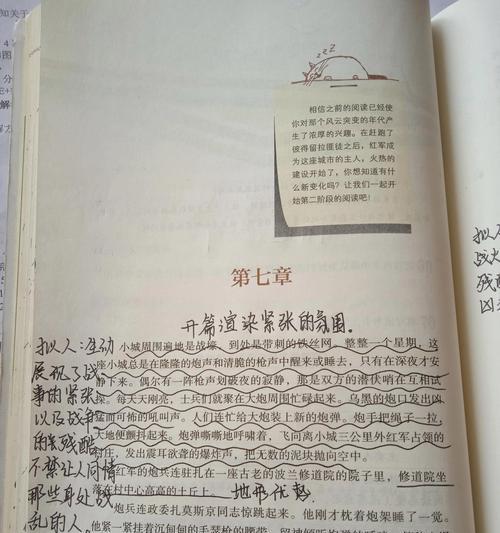 zzz
相信之前的阅读已经使
你对那个风云突变的年代产
生了浓厚的兴趣。在赶跑了
彼得留拉匪徒之后，红军成
为这座城市的主人，火热的
建设开始了，你想知道有什
么新变化吗？让我们一起开
始第二阶段的阅读吧！
第七章
开篇渲染紧张的氛围。
小城周围遍地是战壕，到处是带刺的铁丝网。整整一个星期，这
座小城总是在隆隆的炮声和清脆的枪声中醒来或睡去，只有在深夜才安
静下来。偶尔有一阵枪声划破夜的寂静，那是双方的潜伏哨在互相试
探。每天天刚亮，士兵们就聚在大炮周围忙碌起来。乌黑的炮口发出凶
猛而可怖的吼叫声。人们连忙给大炮装上新的炮弹。炮手把绳子一拉，
大地便颤抖起来。炮弹嘶嘶地呼啸着，飞向离小城三公里外红军占领的
村庄，发出震耳欲聋的爆炸声，把无数的泥块抛向空中。
红军的炮兵连驻扎在一座古老的波兰修道院的院子里，修道院坐
落在村中心高高的土丘上。
地形优势
炮兵连政委扎莫斯京同志惊跳起来。他刚才枕着炮架睡了一觉。
他紧一紧挂着沉甸甸的毛瑟枪的腰带
拟人：生动
展现了战
事的紧张
以及战争
的残酷
不禁让人同情
那些身处战
乱的人。